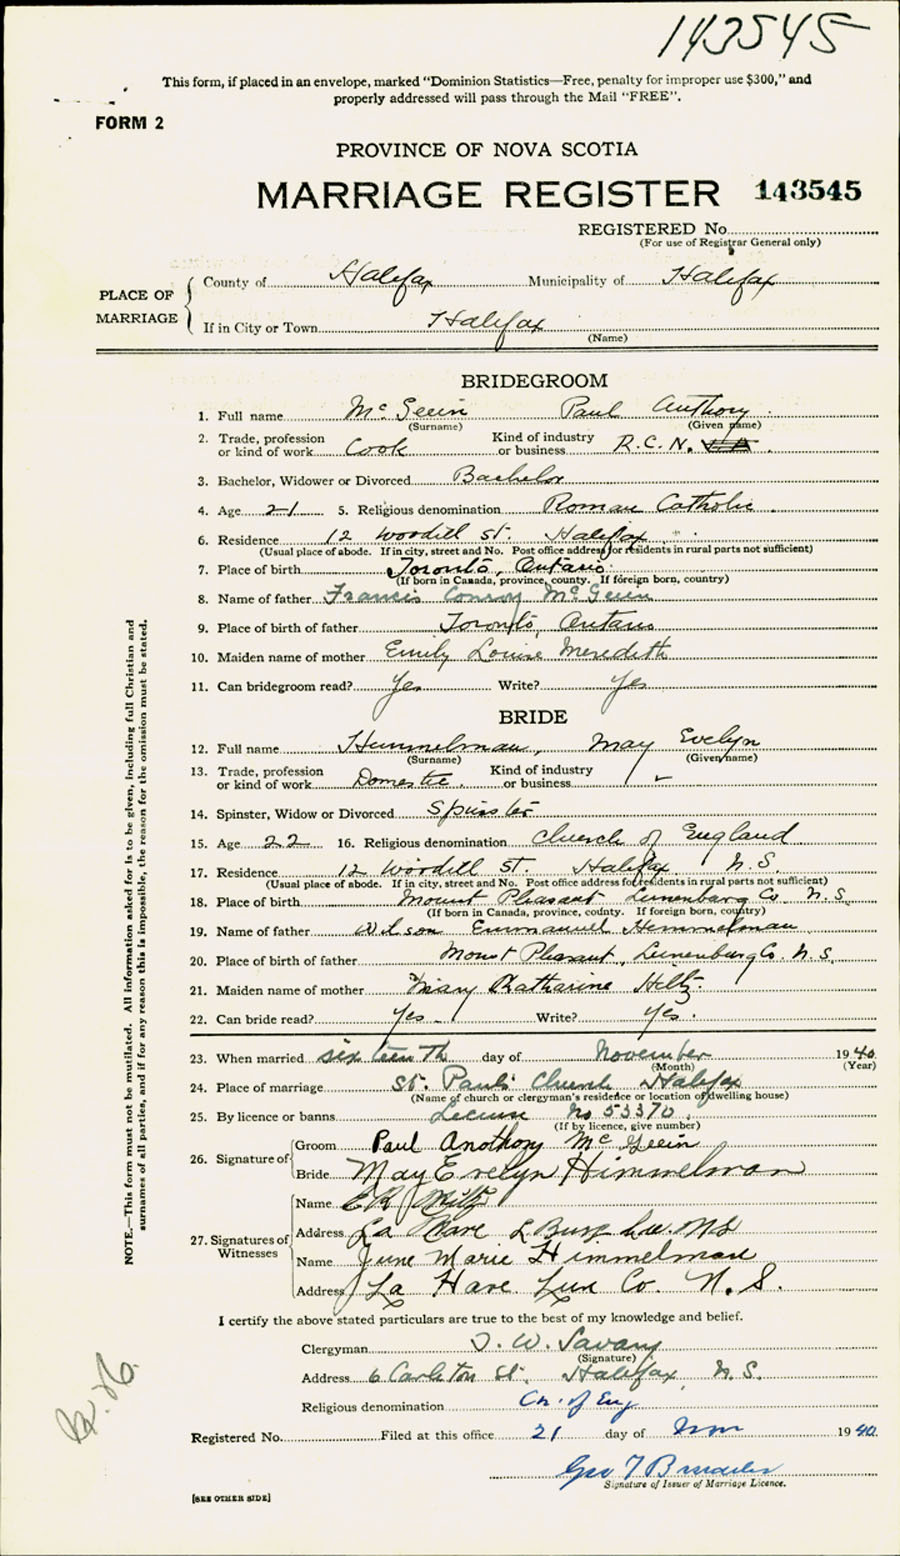 143545
This form, if placed in an envelope, marked "Dominion Statistics—Free, penalty for improper use $300," and
properly addressed will pass through the Mail "FREE".
FORM 2
PROVINCE OF NOVA SCOTIA
MARRIAGE REGISTER 143545
REGISTERED No
(For use of Registrar General only)
PLACE OF MARRIAGE
County of Halifax Municipality of Halifax
If in City or Town Halifax
(Name)
BRIDEGROOM
1. Full name McGeein Paul Anthony
(Surname) (Given name)
2. Trade, profession or kind of work Cook Kind of industry or business R.C.N.
3. Bachelor, Widower or Divorced Bachelor
4. Age 21 5. Religious denomination Roman Catholic
6. Residence 12 Woodill St. Halifax
(Usual place of abode. If in city, street and No. Post office address for residents in rural parts not sufficient)
7. Place of birth Toronto, Ontario
(If born in Canada, province, county. If foreign born, country)
8. Name of father Francis Conroy McGeein
9. Place of birth of father Toronto, Ontario
10. Maiden name of mother Emily Louise Meredith
11. Can bridegroom read? Yes Write? Yes
BRIDE
12. Full name Himmelman, May Evelyn
(Surname) (Given name)
13. Trade, profession or kind of work Domestic. Kind of industry or business
14. Spinster, Widow or Divorced Spinster
15. Age 22 16. Religious denomination Church of England
17. Residence 12 Woodill St. Halifax N.S.
(Usual place of abode. If in city, street and No. Post office address for residents in rural parts not sufficient)
18. Place of birth Mount Pleasant Lunenburg Co. N.S.
(If born in Canada, province, county. If foreign born, country)
19. Name of father Wilson Emmanuel Himmelman
20. Place of birth of father Mount Pleasant, Lunenburg Co. N.S.
21. Maiden name of mother Mary Katharine Heltz
22. Can bride read? Yes Write? Yes.
23. When married sixteenth day of November 1940
(Month) (Year)
24. Place of marriage St. Paul's Church Halifax
(Name of church or clergyman's residence or location of dwelling house)
25. By licence or banns License No 53370
(If by licence, give number)
26. Signature of
Groom Paul Anothony McGeein
Bride May Evelyn Himmelman
27. Signatures of Witnesses
Name
Address La Have L Burg N S
Name June Marie Himmelman
Address La Have Lun Co. N.S.
I certify the above stated particulars are true to the best of my knowledge and belief.
Clergyman T. W. Savary
(Signature)
Address 6 Carleton St. Halifax, N.S.
Religious denomination Ch. of Eng
Registered No. Filed at this office 21 day of Nov 1940
Geo T
Signature of Issuer of Marriage Licence.
[SEE OTHER SIDE]
NOTE.—This form must not be mutilated. All information asked for is to be given, including full Christian and
surnames of all parties, and if for any reason this is impossible, the reason for the omission must be stated.